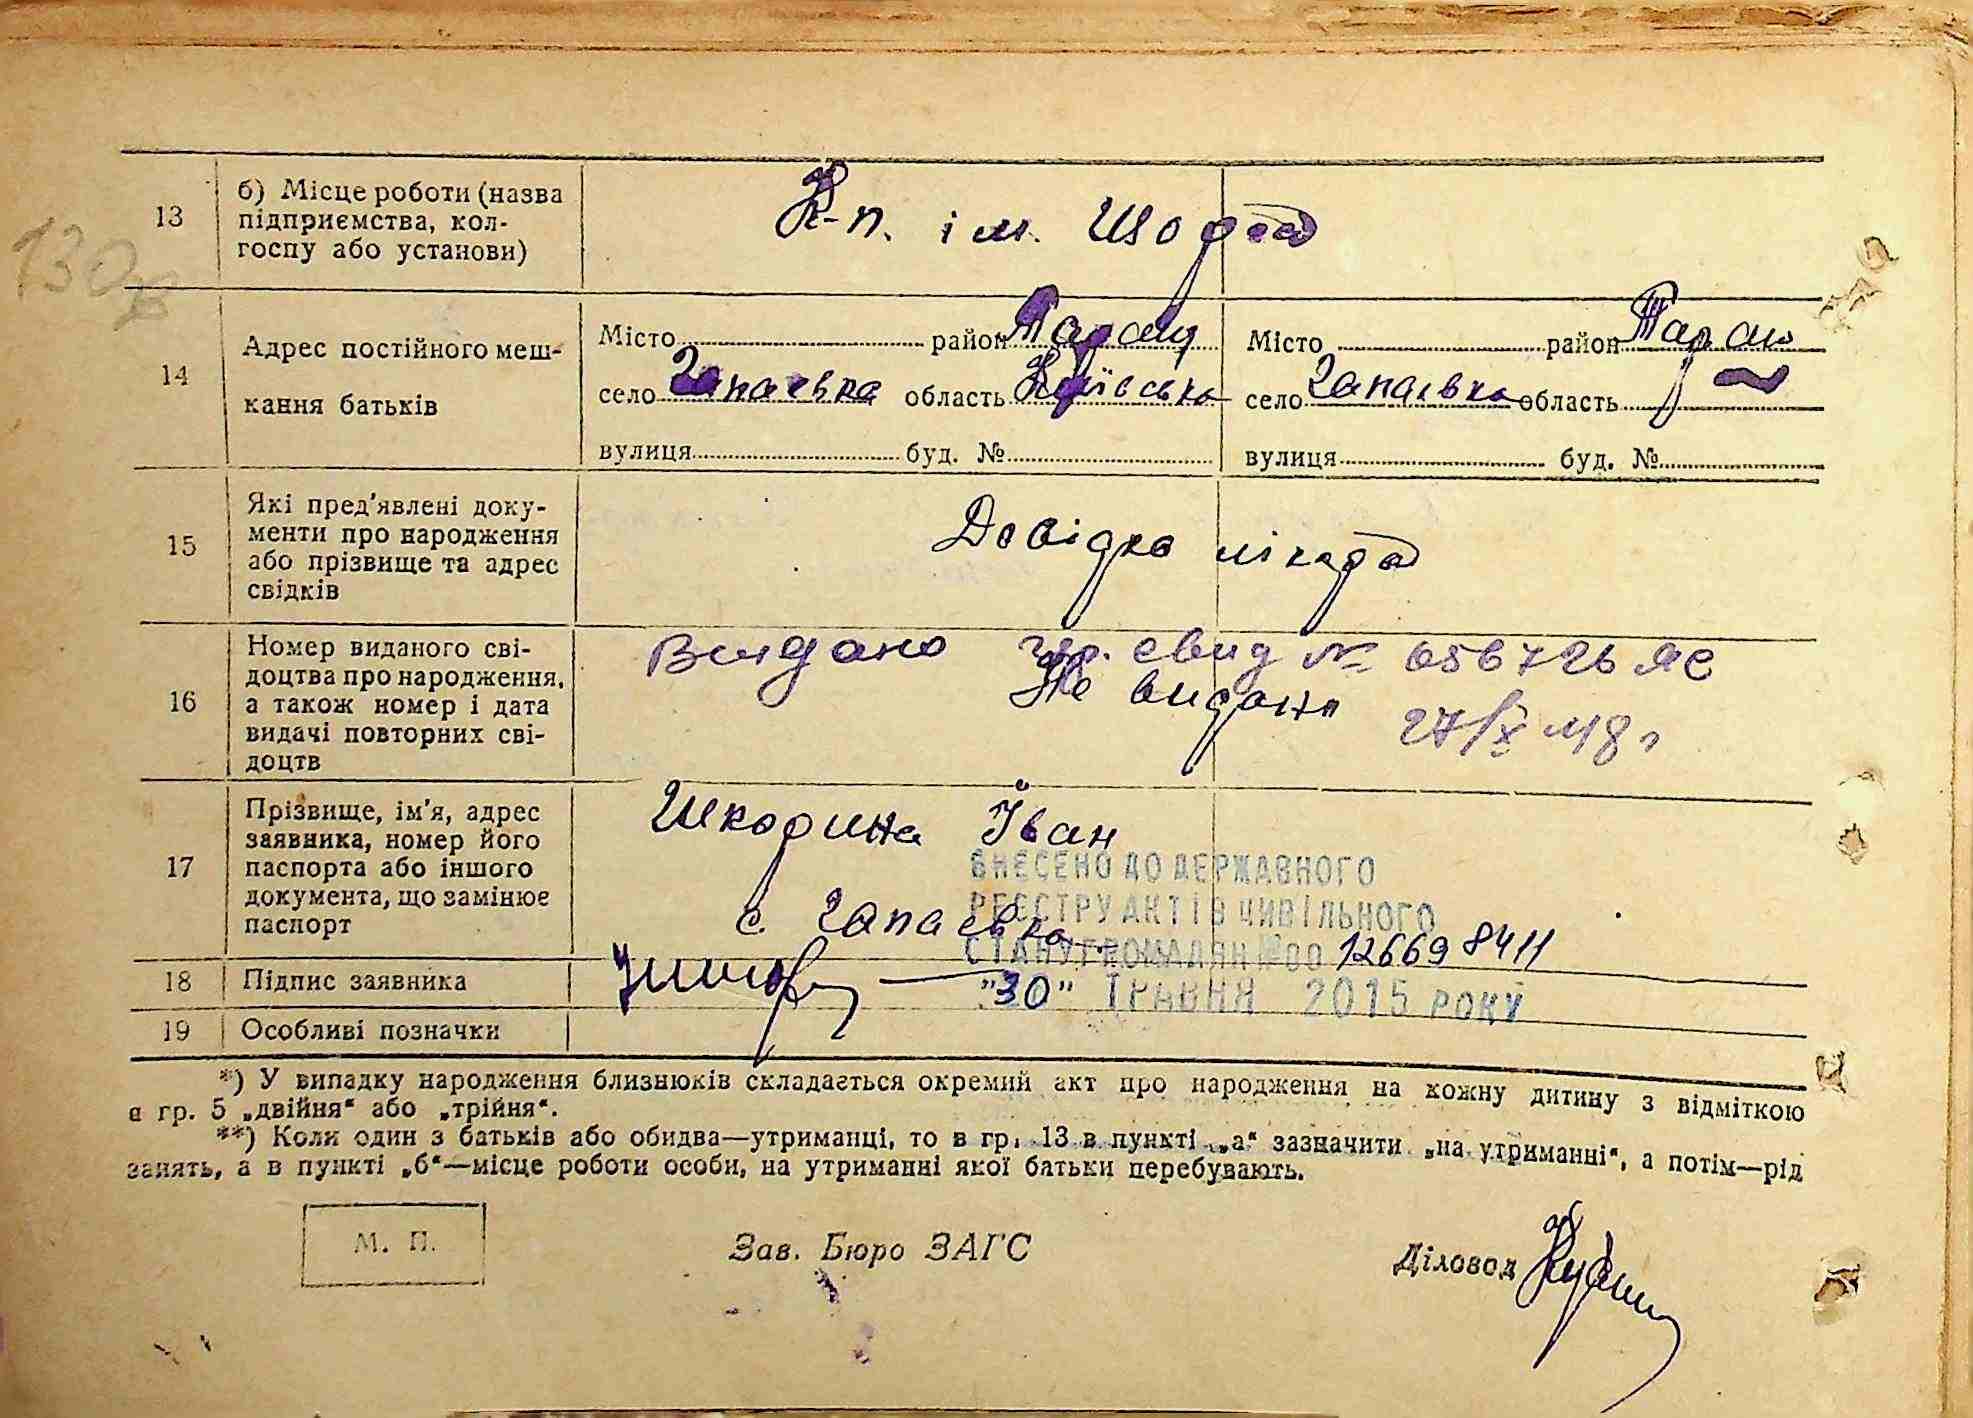 130
13
б) Місце роботи (назва
підприємства, кол-
госпу або установи)
К-п. ім. Щорса
14
Адрес постійного меш-
кання батьків
Місто район Таращ
село Чапаевка область Київська
вулиця буд. №
Місто район Таращ
село Чапаевка область
вулиця буд. №
15
Які пред'явлені доку-
менти про народження
або прізвище та адрес
свідків
Довідка лікаря
16
Номер виданого сві-
доцтва про народження,
а також номер і дата
видачі повторних сві-
доцтв
Видано свид № 056726 ЯС
Не видано
27/X 48 г
17
Прізвище, ім'я, адрес
заявника, номер його
паспорта або іншого
документа, що замінює
паспорт
Шкодина Іван
с. Чапаевка
ВНЕСЕНО ДО ДЕРЖАВНОГО
РЕЄСТРУ АКТІВ ЦИВІЛЬНОГО
СТАНУ ГРОМАДЯН №00 126698411
"30" ТРАВНЯ 2015 РОКУ
18
Підпис заявника
19
Особливі позначки
*) У випадку народження близнюків складається окремий акт про народження на кожну дитину з відміткою
в гр. 5 „двійня“ або „трійня“.
**) Коли один з батьків або обидва—утриманці, то в гр. 13 в пункті „а“ зазначити „на утриманні“, а потім—рід
занять, а в пункті „б“—місце роботи особи, на утриманні якої батьки перебувають.
М. П.
Зав. Бюро ЗАГС
Діловод